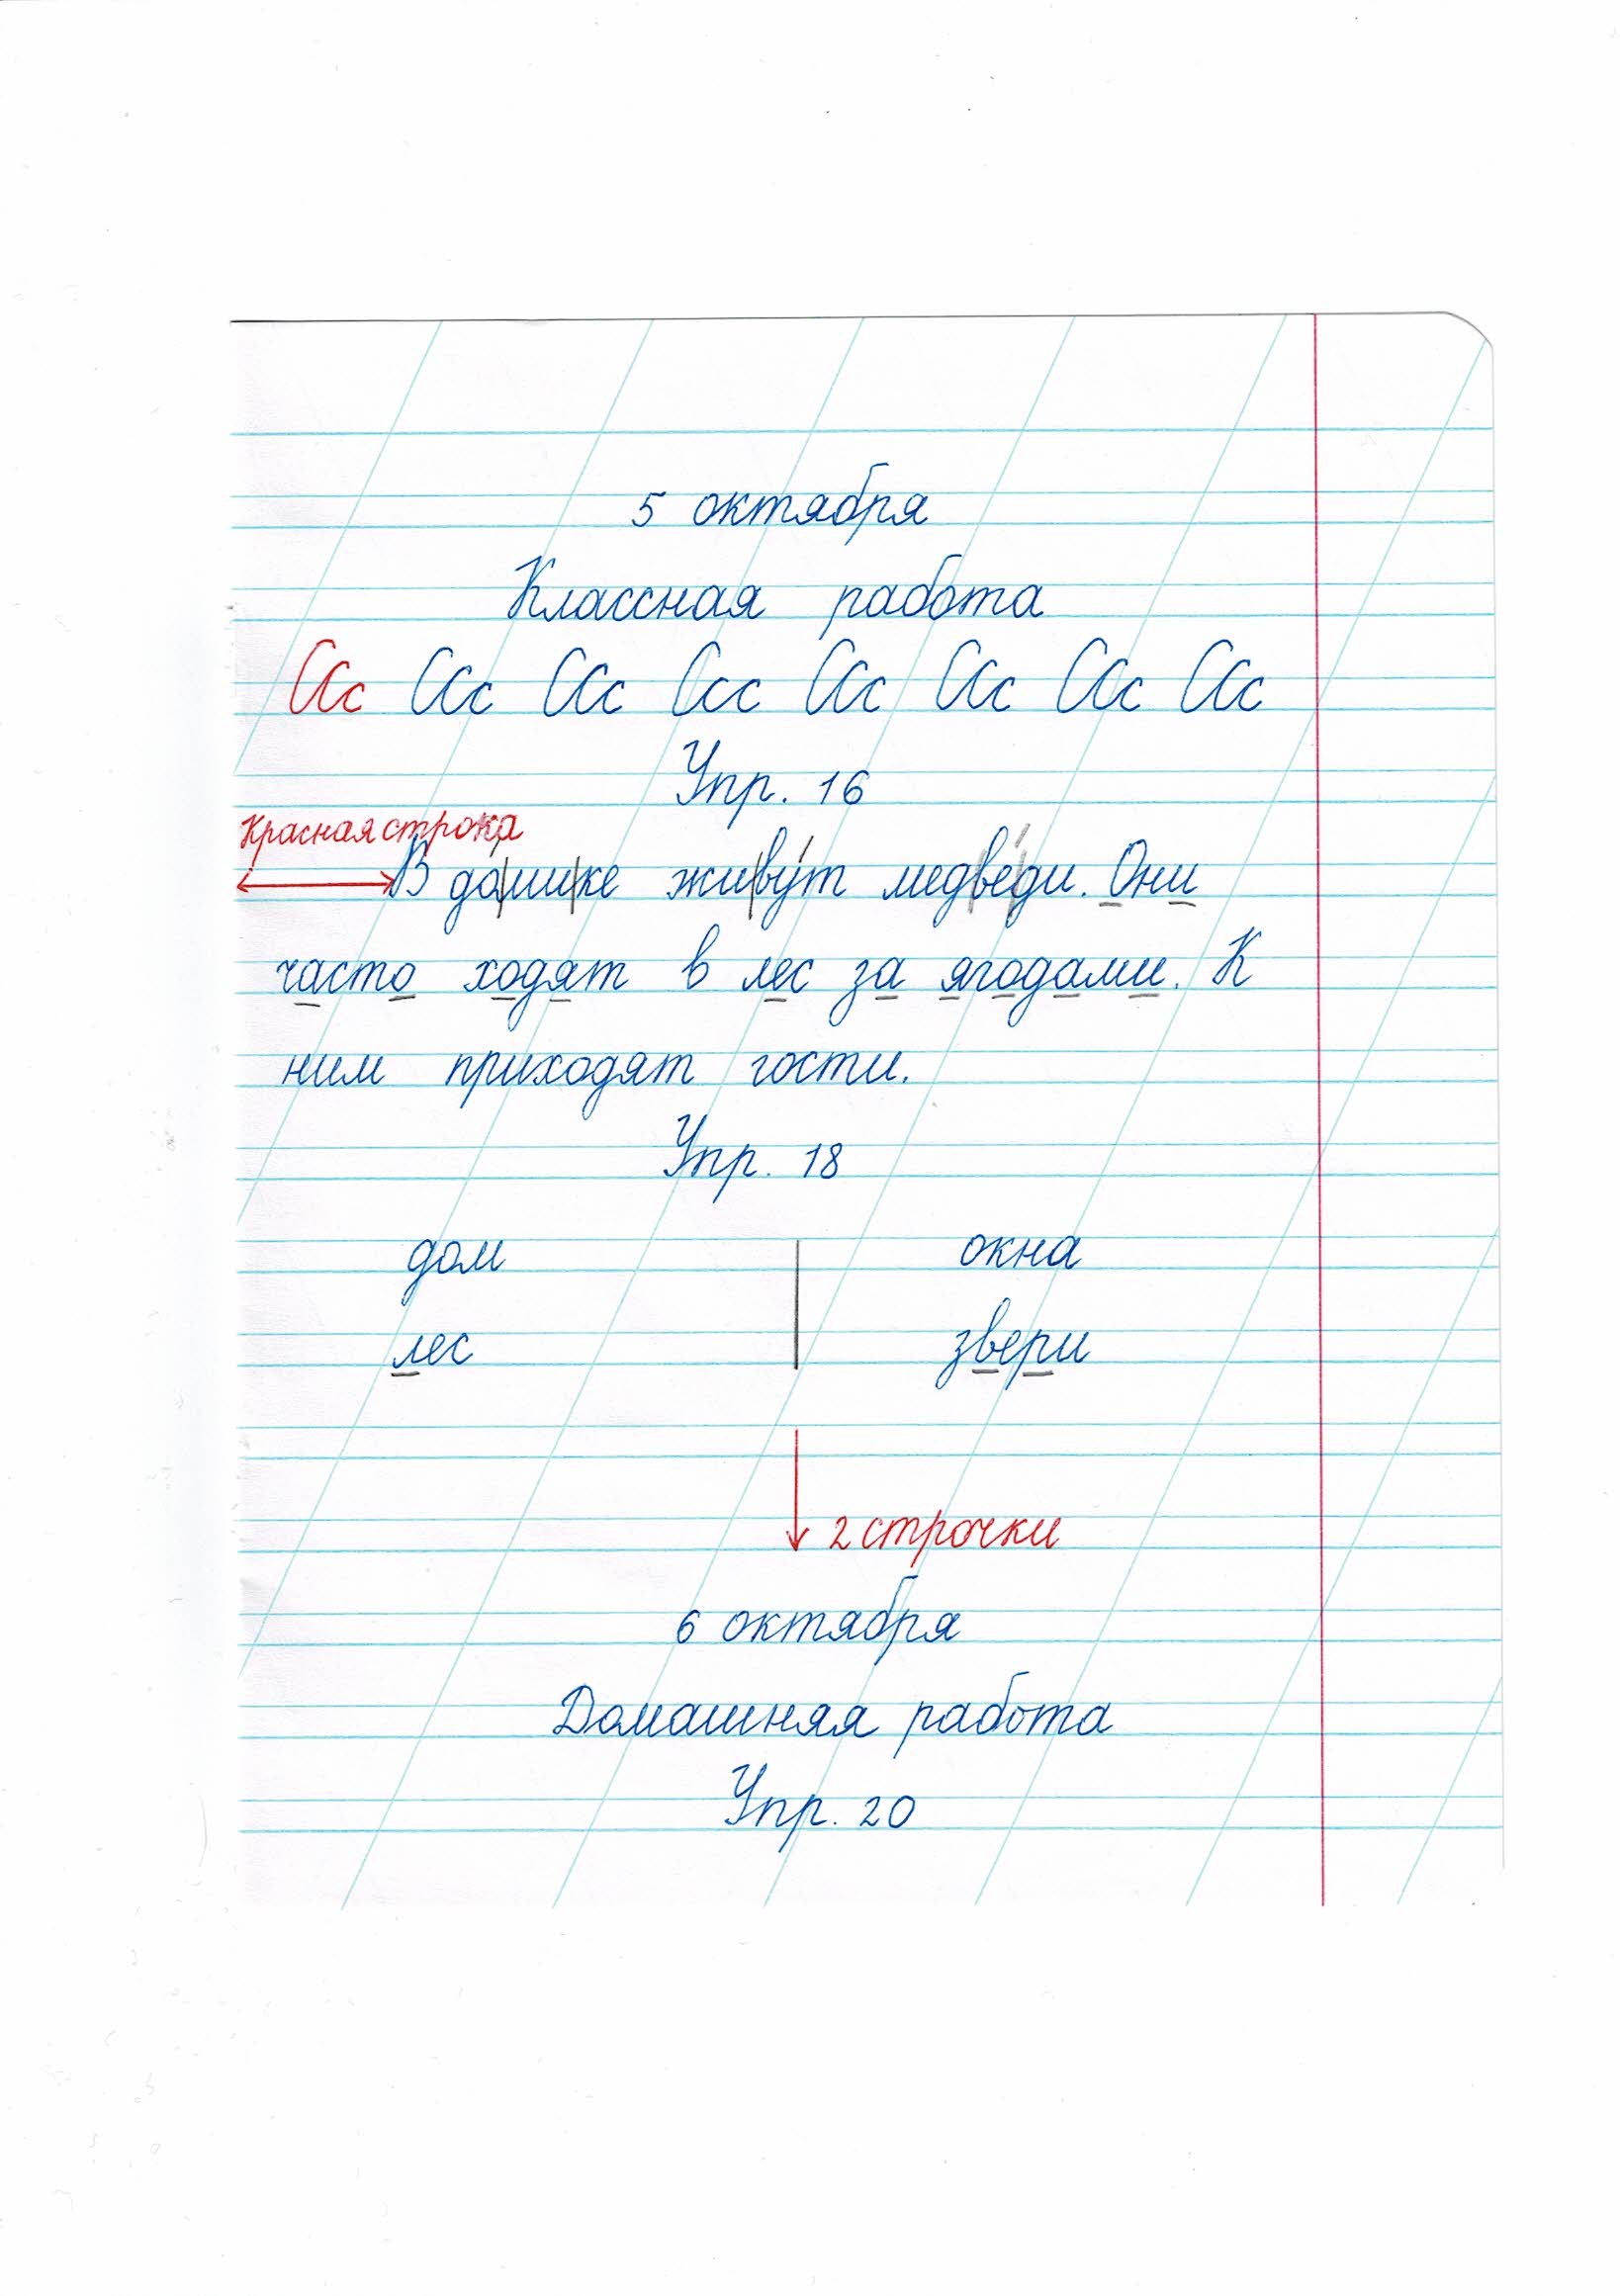 5 октября
Классная работа
ССс ССс ССс Ссс ССс ССс ССс ССс
Упр. 16
Красная строка
В домике живут медведи. Они
часто ходят в лес за ягодами. К
ним приходят гости.
Упр. 18
дом окна
лес звери
2 строчки
6 октября
Домашняя работа
Упр. 20